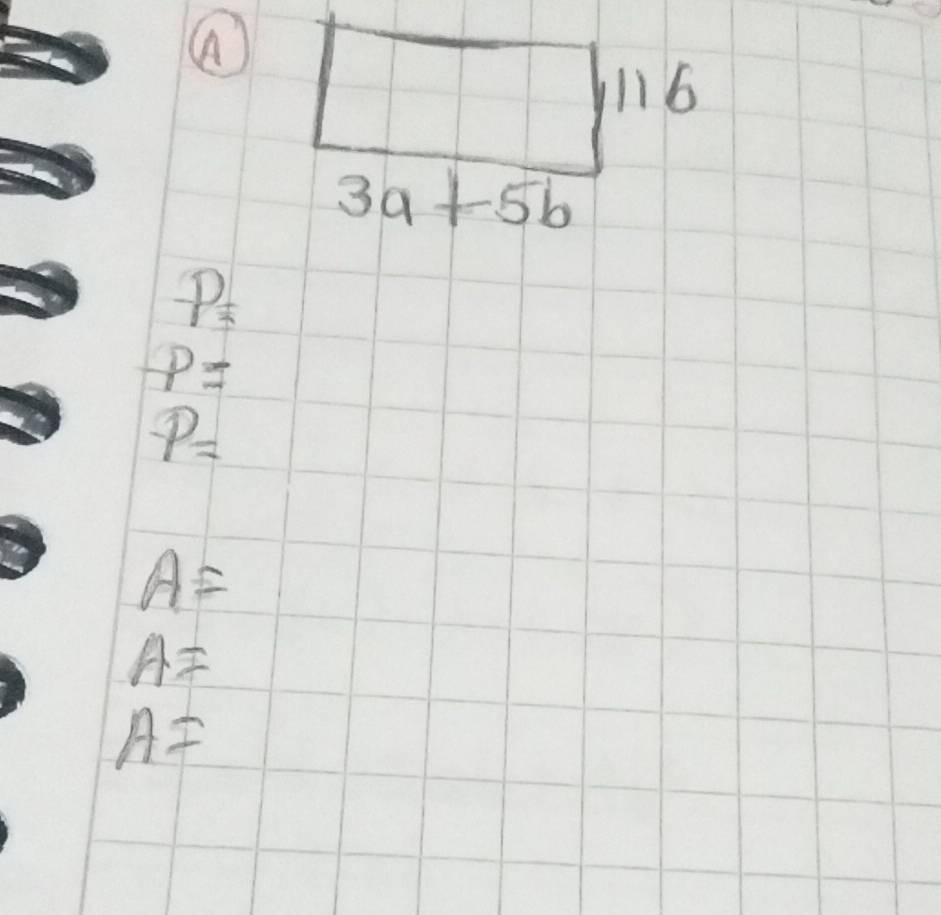 A
116
3a+5b
P=
P=
P=
A=
A=
A=